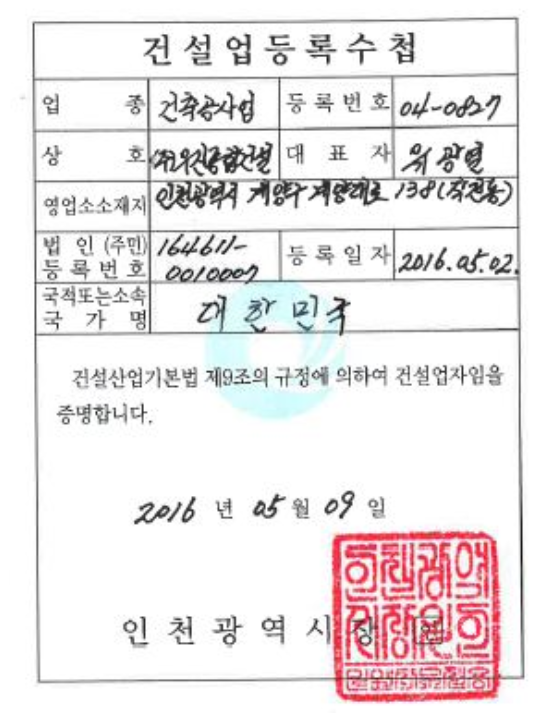 건설업등록수첩
업 종 건축공사업 등록번호 04-0827
상 호 (주)우진종합건설 대 표 자 위광열
영업소소재지 인천광역시 계양구 계양대로 138(작전동)
법 인 (주민) 164611-
등 록 번 호 0010007 등록일자 2016.05.02.
국적또는소속
국 가 명 대한민국
건설산업기본법 제9조의 규정에 의하여 건설업자임을
증명합니다.
2016 년 05 월 09 일
인 천 광 역 시 장